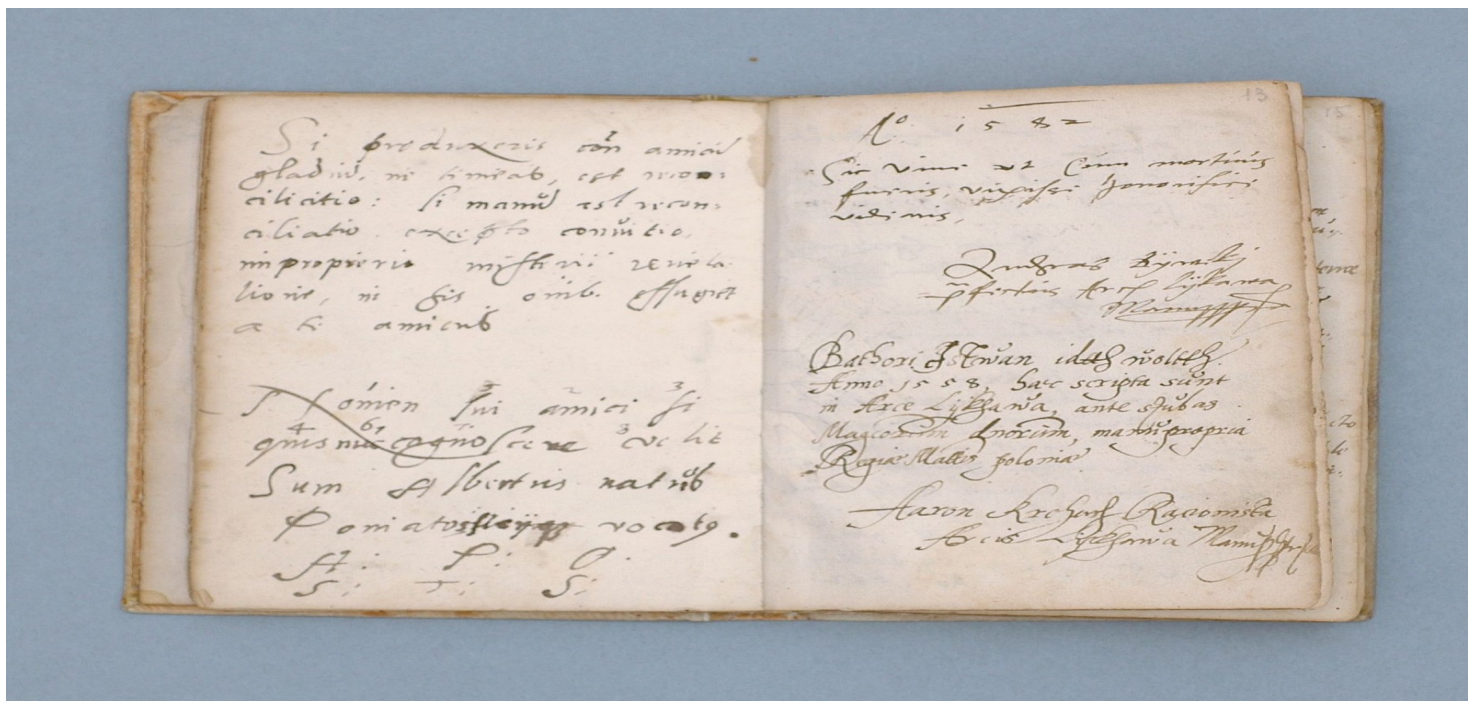 Si produxeris con amicū
gladiū, ne timeas, est recon-
cilicitio: si manū est recon-
ciliatio excepto convitio,
impropierio misterii revela-
tione, in his omib. effugiet
a te amicus
nomen sui amici si
quis nūc cognoscere velit
Sum Albertus natus
Poniatovsciq vocatq.
A: P: O:
S: T: S:
13
Aº. 1582
Sic vive ut Cum mortuus
fueris, vixisse honorifice
videaris,
Andreas
pfectus Arc Lijkawa
Manu
Bathori Istwan idech woltth.
Anno 1558, haec scripta sunt
in Arce Lykhawa, ante
Dnorum, manu propria
Regiae Mattis poloniae
Aaron Rationista
Arcis Lykhawa Manu
15